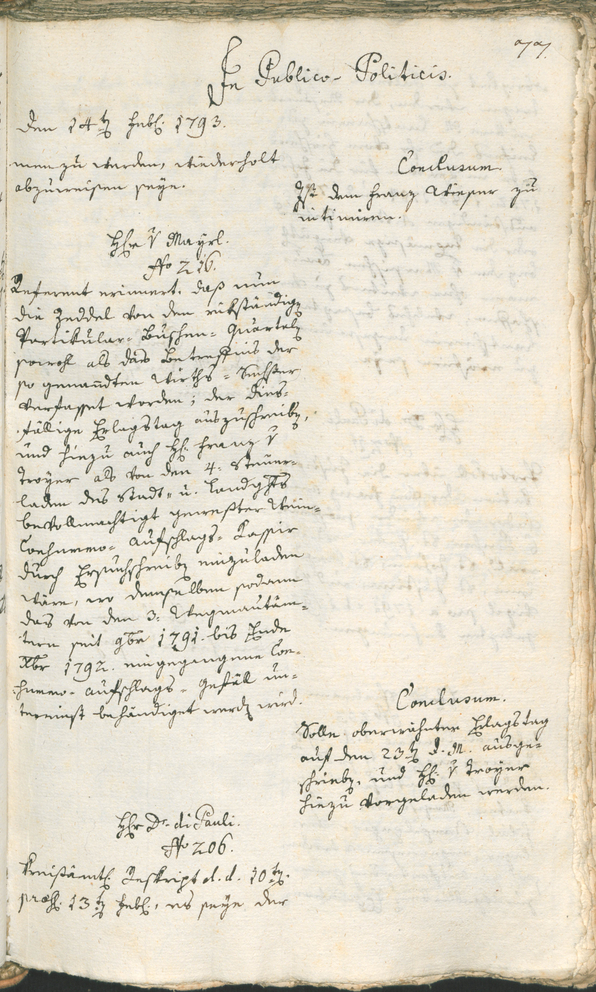 77.
In Publico-Politicis.
den 14ten Hebr. 1793.
men zu werden, wiederholt
abzuweisen seye.
Conclusum
Ist dem Franz Wieser zu
intimiren.
Hr v Mayrl.
No 216.
Referent erinnert, daß nun
die Zeddel von den rükständigen
Partikular-Buschen-Quartels
sowohl als das Betreffnis der
so genannten Wirths-Sechster
verfasset worden; der dies-
fällige Erlagstag auszuschreiben,
und hiezu auch H. Franz v
Troyer als von den 4. Steuer-
laden des Stadt- u. Landgchts
bevollmächtigt gewester Wein-
Consummo-Aufschlags-Kassir
durch Ersuchschreiben einzuladen
wäre, wo demselben sodann
das von den 3. Wegmautäm-
tern seit 9br 1791. bis Ende
Xbr 1792. eingegangene Con-
summo-Aufschlags-Gefäll un-
tereinst behändiget werden wird.
Conclusum.
Solle oberwähnter Erlagstag
auf den 23ten d. M. ausge-
schrieben, und H. v Troyer
hiezu vorgeladen werden.
Hr Dr. di Pauli.
No 206.
Kreisamtl. Reskript d. d. 10ten.
praes. 13ten Hebr., es seye der